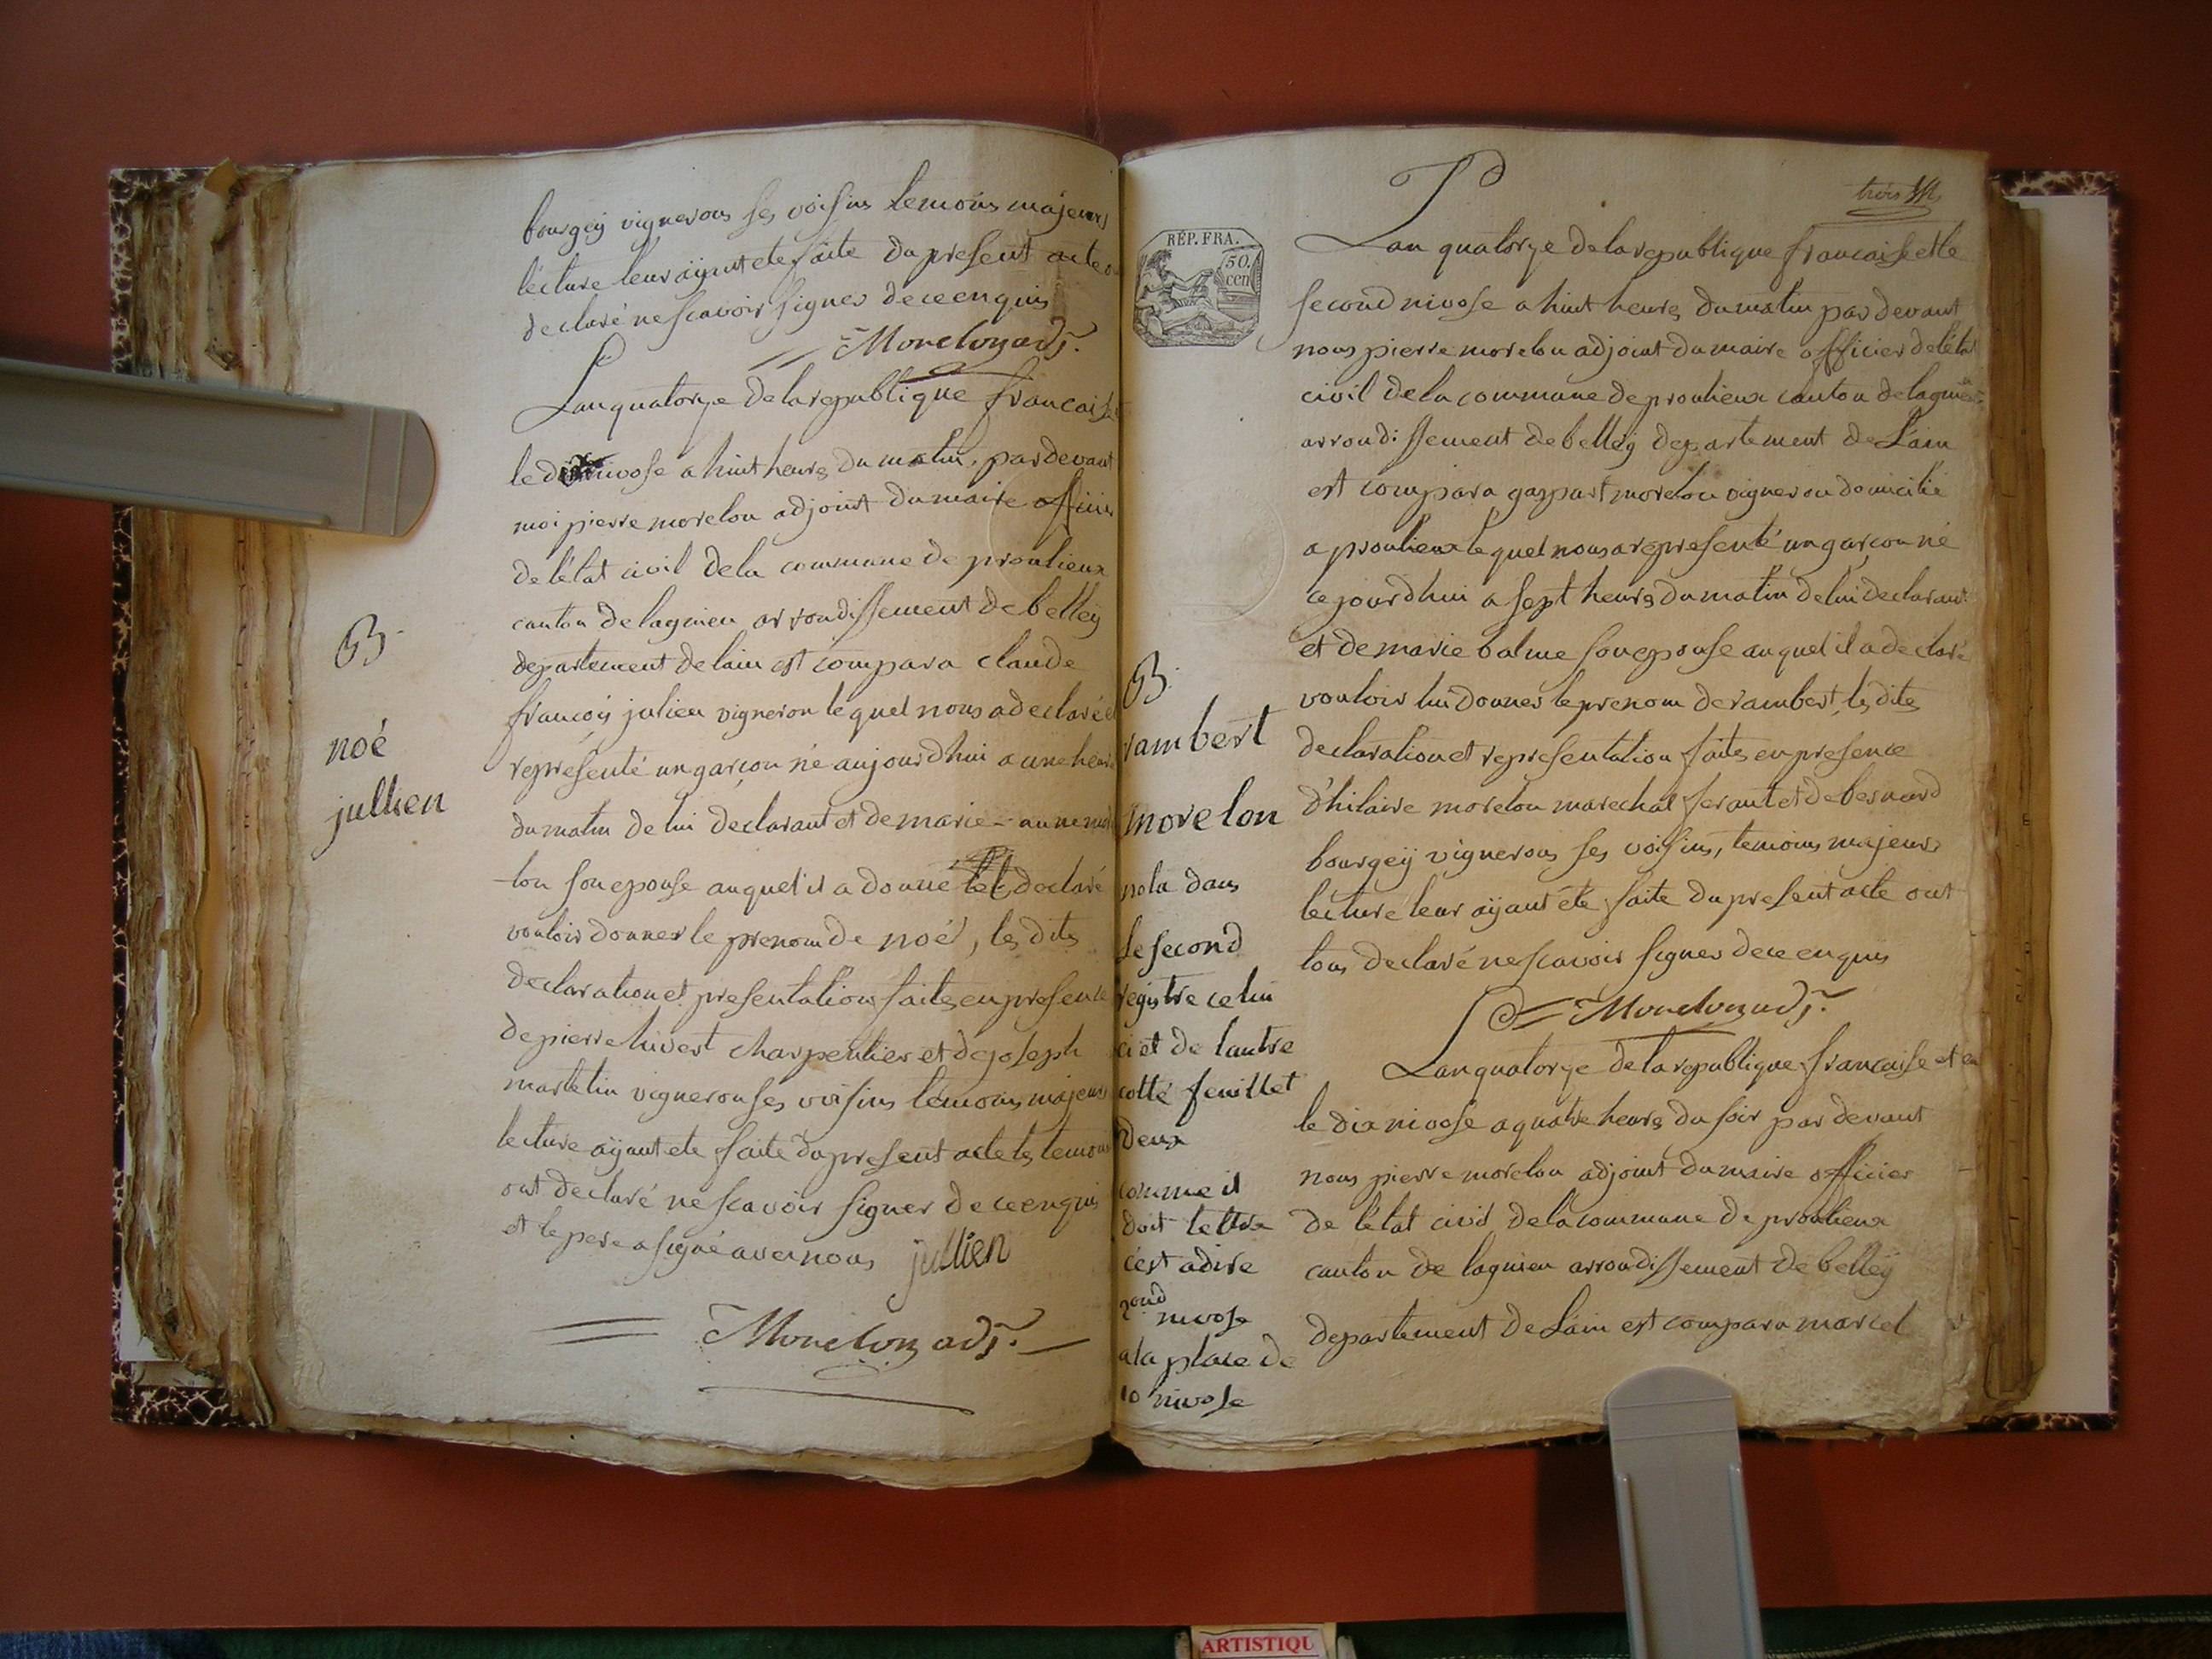 bourgeÿ vignerons ses voisins temoins majeurs
lécture leur aÿant ete faite du present acte
declaré ne scavoir signer de ce enquis
Morelon adj.
L'an quatorze de la republique francaise
le dix nivose a huit heures du matin, par devant
moi pierre morelon adjoint du maire officier
de l'état civil de la commune de proulieux
canton de lagnieu arrondissement de belleÿ
departement de lain est compara claude
françois julien vigneron le quel nous a declaré et
représenté un garçon né aujourdhui a une heure
du matin de lui declarant et de marie-anne more
-lon son epouse auquel il a donne et declaré
vouloir donner le prenom de noé, les dits
declaration et presentation faites en presence
de pierre hivert charpentier et de joseph
martelin vigneron ses voisins temoins majeurs
lecture aÿant ete faite du present acte les temoins
ont declaré ne scavoir signer de ce enquis
et le pere a signé avec nous jullien
Morelon adj.
B.
noé
jullien
trois
RÉP. FRA.
50.
cen
L'an quatorze de la republique francaise et le
second nivose a huit heures du matin par devant
nous pierre morelon adjoint du maire officier de l'état
civil de la commune de proulieux canton de lagnieu
arrondissement de belleÿ departement de L'ain
est compara gaspart morelon vigneron domicilié
a proulieux le quel nous a representé un garçon né
cejourdhui a sept heures du matin de lui declarant
et de marie balme son epouse auquel il a declaré
vouloir lui donner le prenom de rambert, les dites
declaration et representation faites en presence
d'hilaire morelon marechal ferant et de bernard
bourgeÿ vignerons ses voisins, temoins majeurs
lecture leur aÿant été faite du present acte ont
tous declaré ne scavoir signer de ce enquis
Morelon adj.
L'an quatorze de la republique francaise et
le dix nivose a quatre heures du soir par devant
nous pierre morelon adjoint du maire officier
de l'état civil de la commune de proulieux
canton de lagnieu arrondissement de belleÿ
departement de Lain est compara marcel
B.
rambert
morelon
nota dans
le second
régistre celui
ci et de lautre
cotté feuillet
deux
comme il
doit lettre
c'est adire
2ond nivose
a la place de
10 nivose
ARTISTIQU